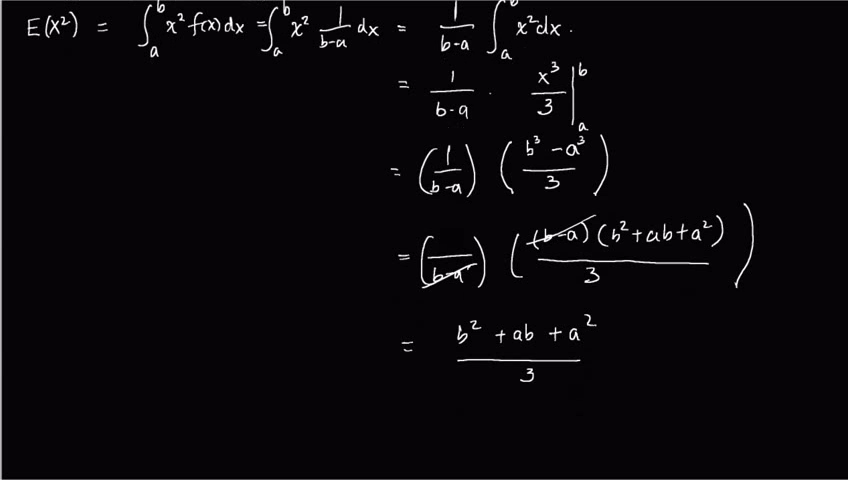 E(X²) = ∫ₐᵇ x² f(x) dx = ∫ₐᵇ x² 1/(b-a) dx = 1/(b-a) ∫ₐᵇ x² dx.
= 1/(b-a) · x³/3 |ₐᵇ
= (1/(b-a)) ((b³ - a³)/3)
= ( /(b-a)) ((b-a)(b² + ab + a²)/3)
= (b² + ab + a²)/3